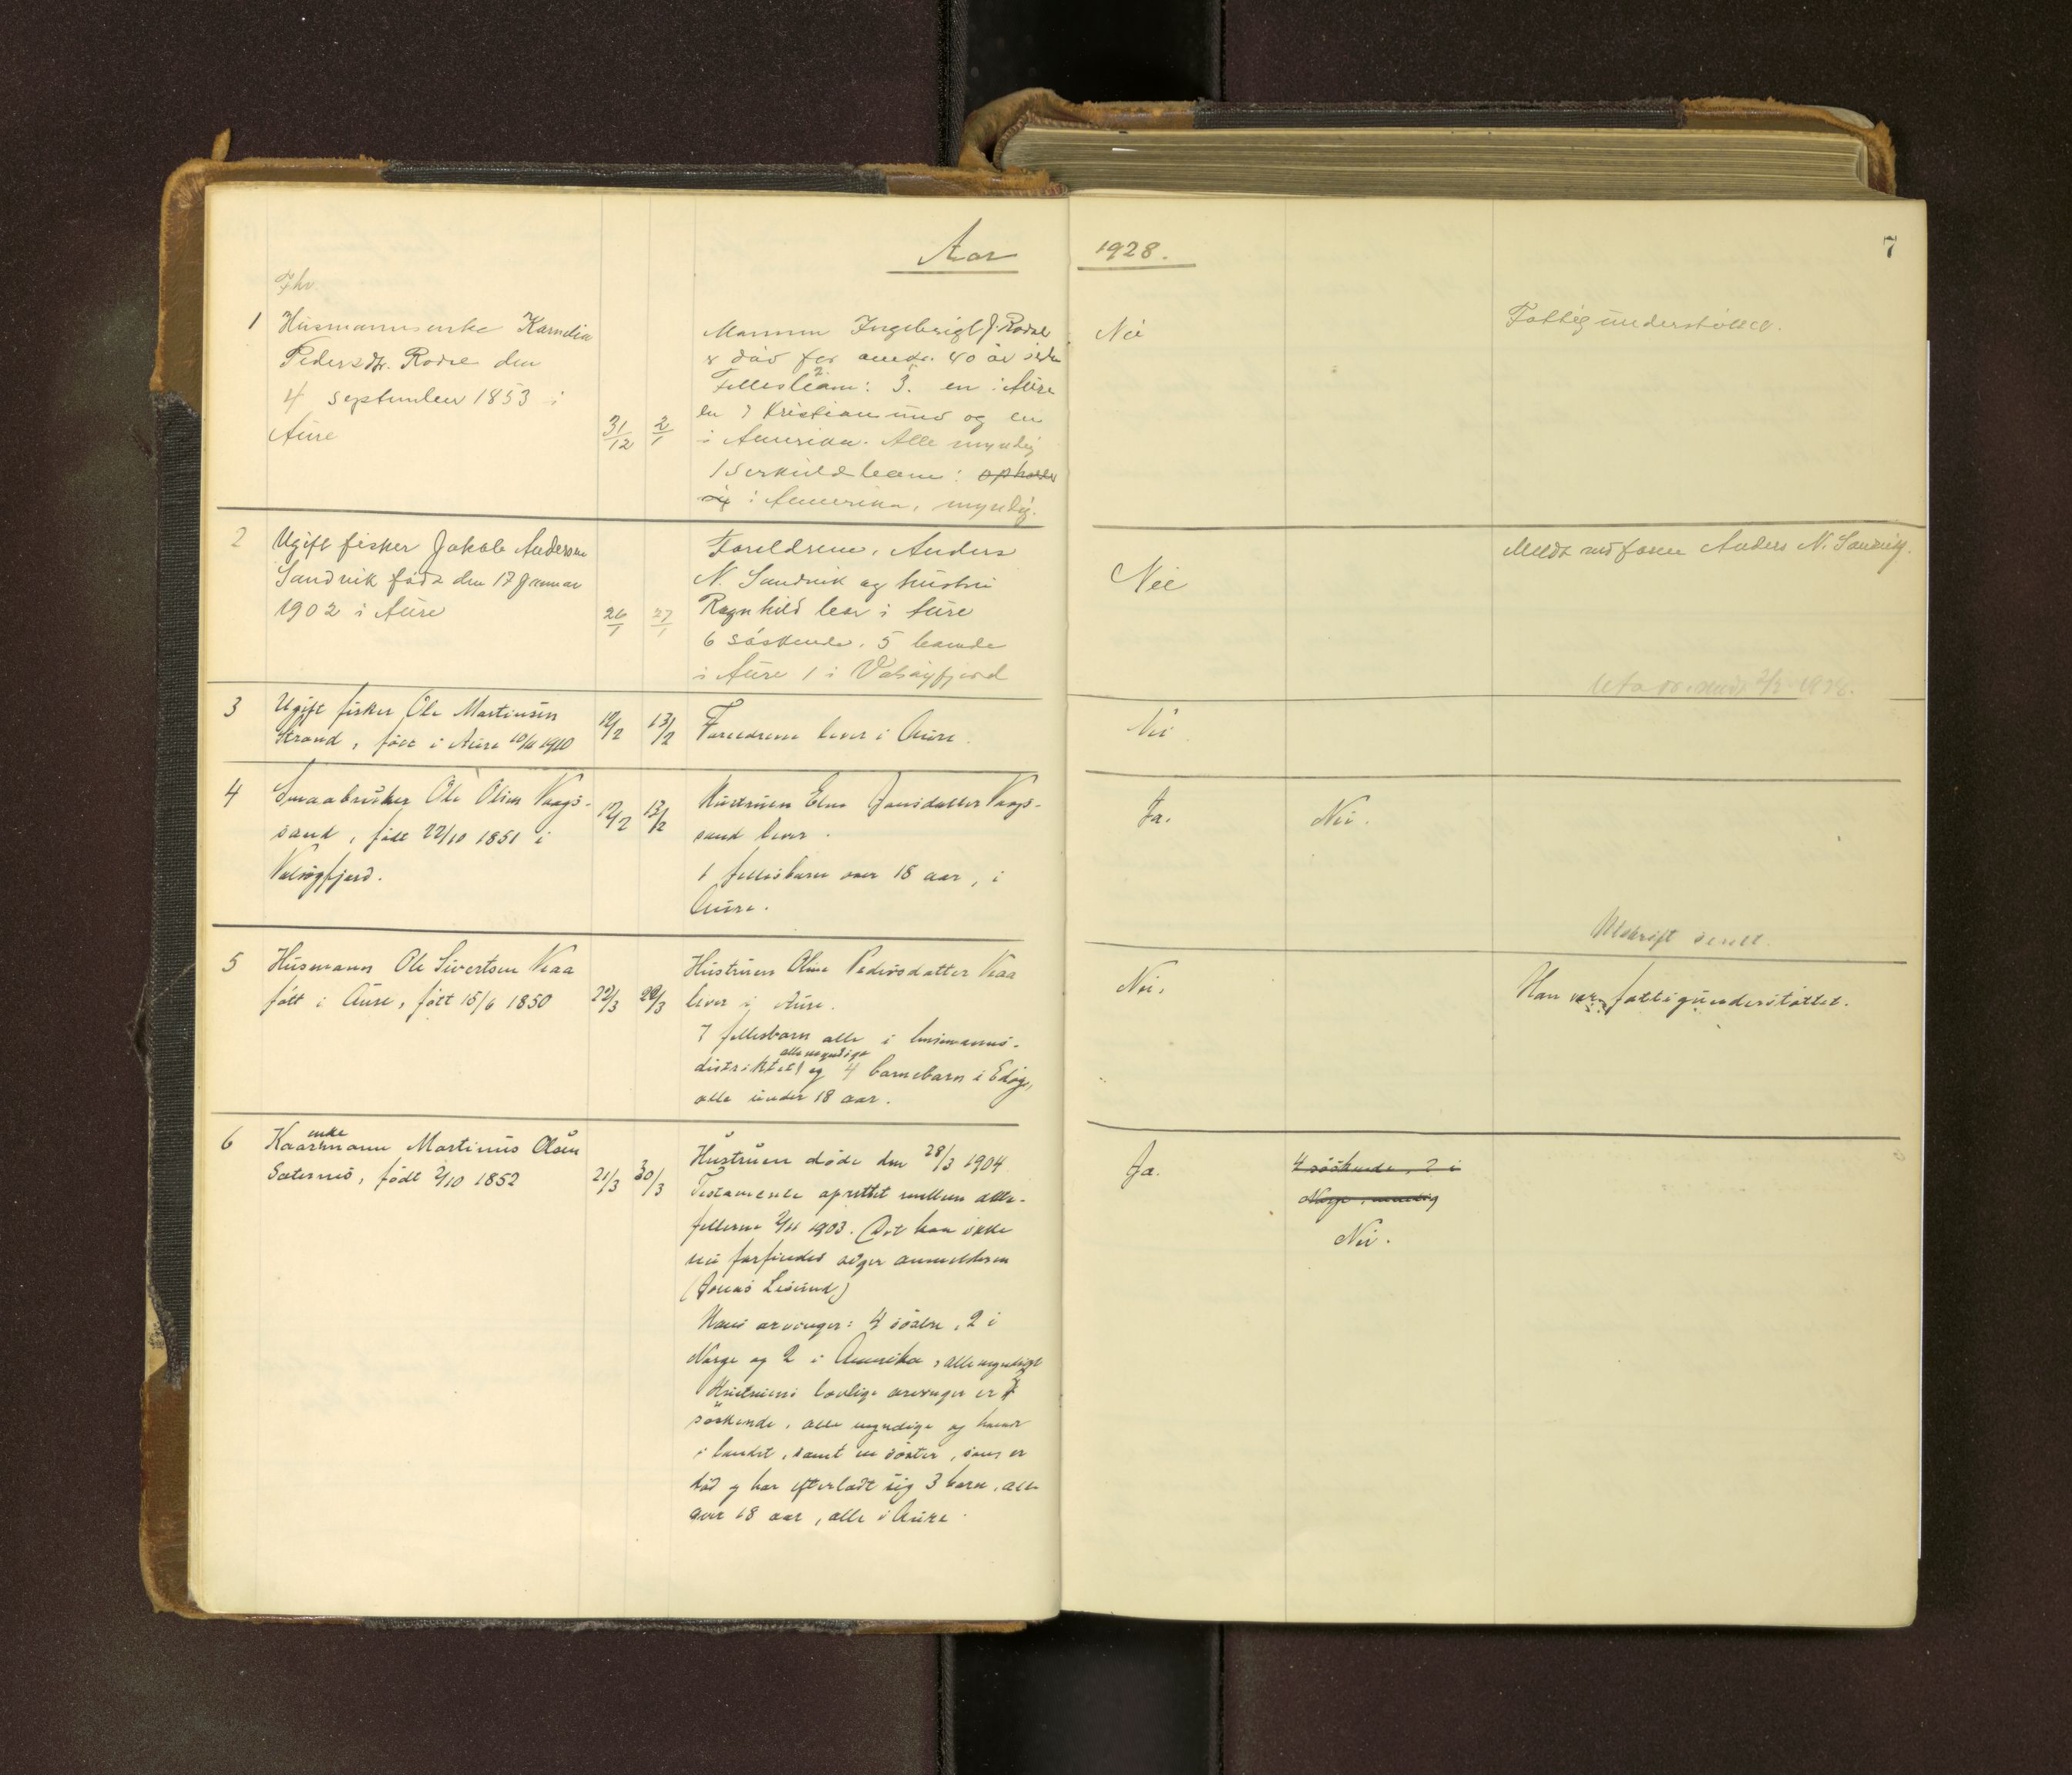 Aar 1928.
7
Fhv.
1 Husmannsenke Karnelia
Pedersdtr. Rodal den
4 september 1853 i
Aure
31/12 2/1
Mannen Ingebrigt J. Rodal
død for omtr. 40 år siden
Fellesbarn: 3. en i Aure
en i Kristiansund og en
i Amerika. Alle myndig
1 serkuldbarn: opholder
sig i Amerika, myndig.
Nei
Fattigunderstøttet.
2 Ugift fisker Jakob Andersen
Sandvik født den 17 januar
1902 i Aure
26/1 27/1
Foreldrene, Anders
N. Sandvik og hustru
Ragnhild bor i Aure
6 søskende. 5 boende
i Aure 1 i Valsøyfjord
Nei
Meldt ved faren Anders N. Sandvik.
1928.
3 Ugift fisker Ole Martinsen
Strand, født i Aure 10/11 1910
12/2 13/2
Foreldrene lever i Aure.
Nei
4 Smaabruker Ole Olsen Vaags-
sand, født 22/10 1851 i
Valsøyfjord.
12/2 13/2
Hustruen Elen Jonsdatter Vaags-
sand lever.
1 fellesbarn over 18 aar, i
Aure.
Ja.
Nei.
Utskrift sendt.
5 Husmann Ole Sivertsen Vaa
født i Aure, født 15/6 1850
22/3 28/3
Hustruen Oline Pedersdatter Vaa
lever i Aure.
7 fellesbarn alle i lensmanns-
alle myndige
distriktet og 4 barnebarn i Edøy,
alle under 18 aar.
Nei.
Han var fattigunderstøttet.
enke
6 Kaarmann Martinus Olsen
Sæternes, født 2/10 1852
21/3 30/3
Hustruen døde den 28/3 1904
Testamente oprettet mellem ekte-
fellerne 2/11 1903. (Det kan ikke
nu forfindes siger anmelderen
(Jonas Lesund)
Hans arvinger: 4 søstre, 2 i
Norge og 2 i Amerika, alle myndige
Hustruens lovlige arvinger er
søskende, alle myndige og boende
i landet, samt en søster, som er
død og har efterladt sig 3 barn, alle
over 18 aar, alle i Aure.
Ja.
4 søskende, 2 i
Norge, myndig
Nei.